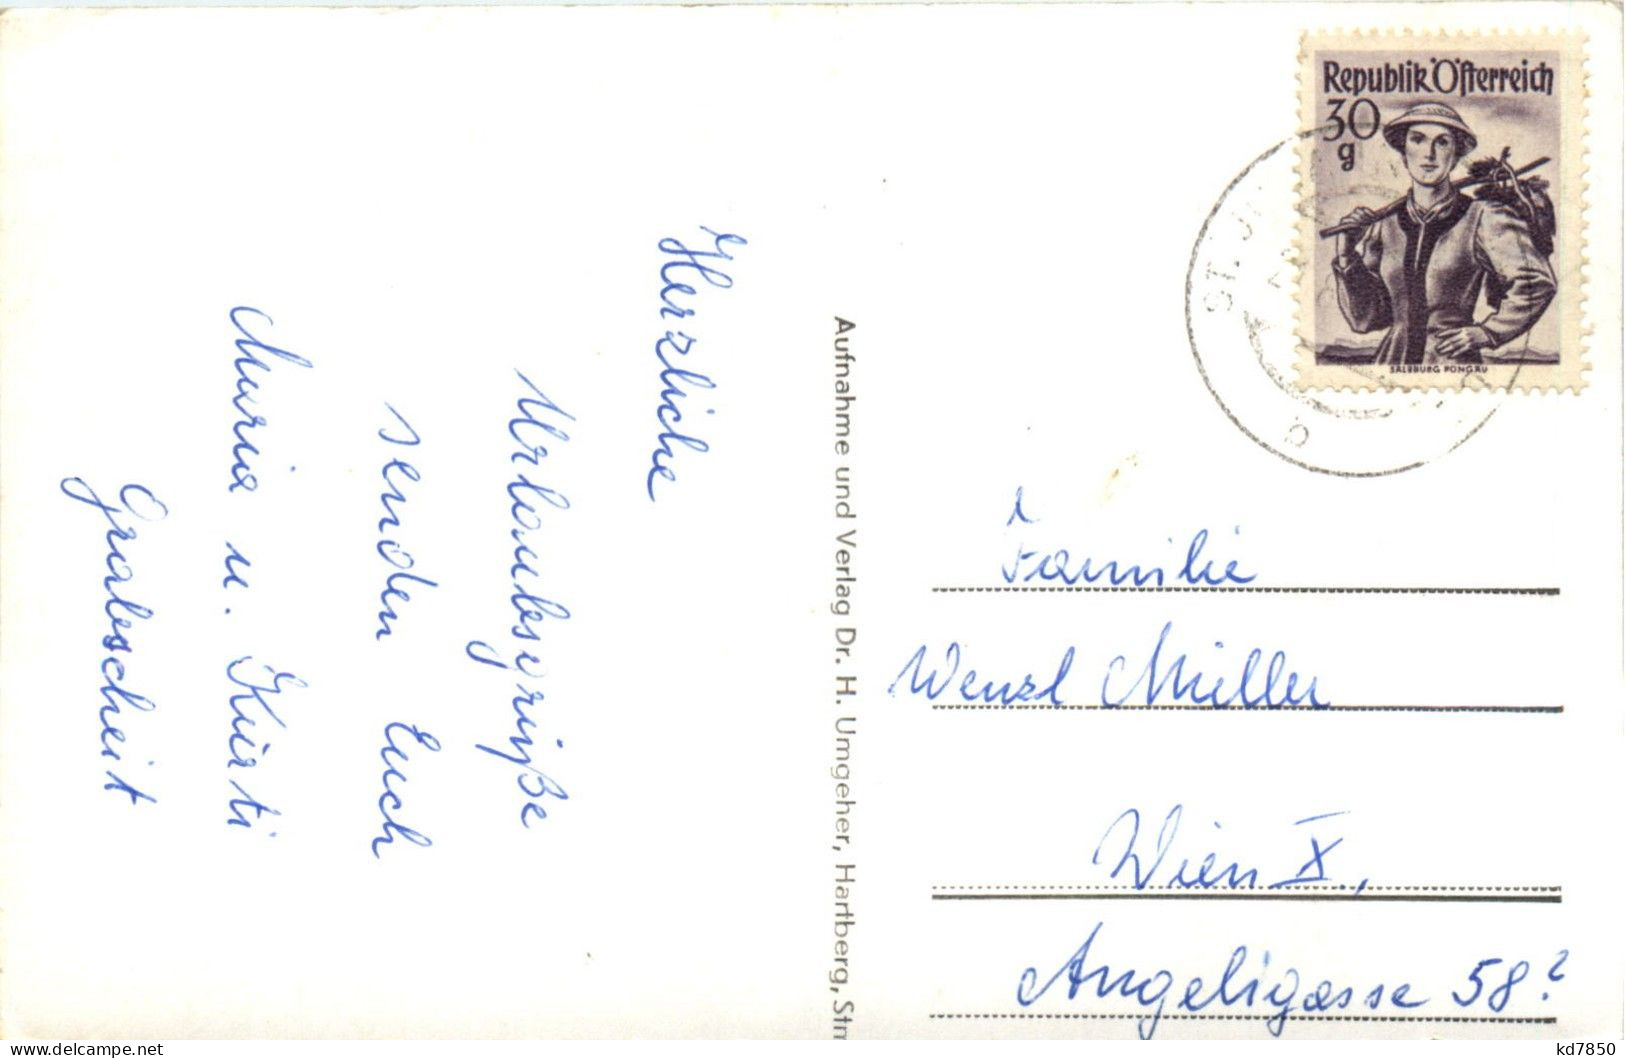 Herzliche
Urlaubsgrüße
senden Euch
Maria u. Kurti
Grabscheit
Aufnahme und Verlag Dr. H. Umgeher, Hartberg, Stm
Republik Österreich
30
g
SALZBURG PONGAU
ST. J
b
Familie
Wenzl Müller
Wien X.,
Angeligasse 58?
www.delcampe.net
kd7850